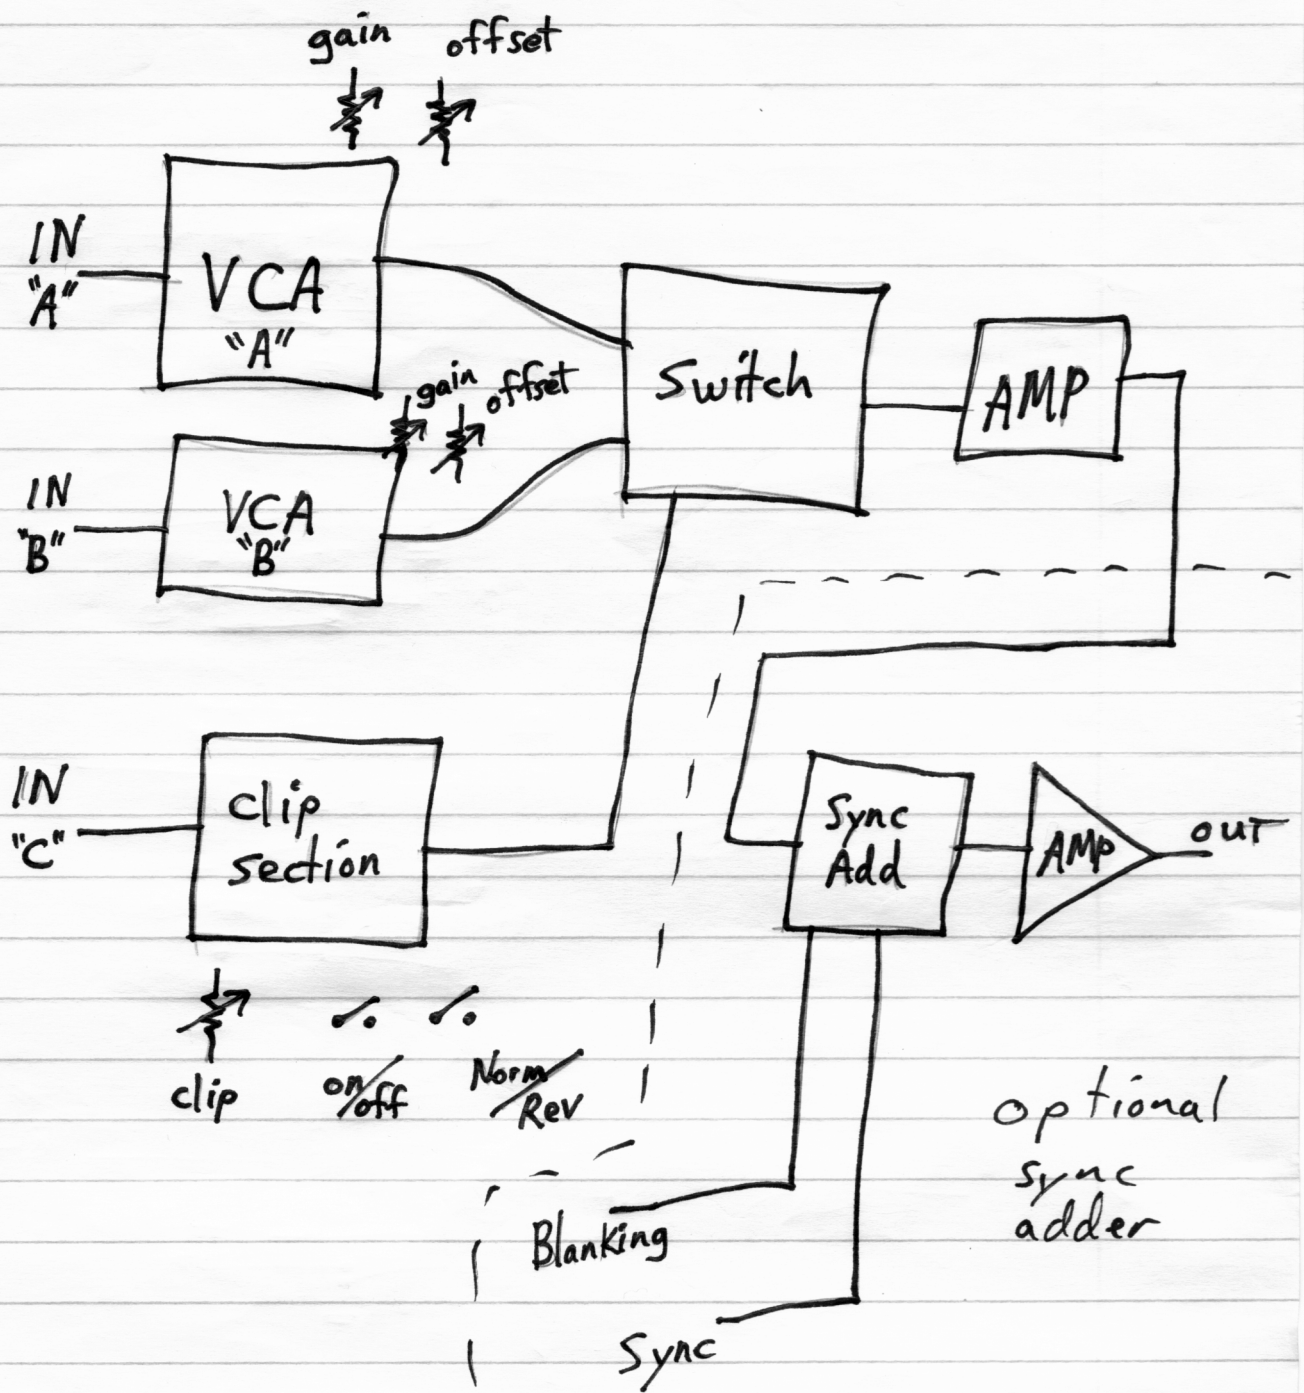 gain
offset
IN
"A"
VCA
"A"
gain
offset
Switch
AMP
IN
"B"
VCA
"B"
IN
"C"
Clip
section
Sync
Add
AMP
OUT
clip
on/off
Norm/Rev
optional
sync
adder
Blanking
Sync